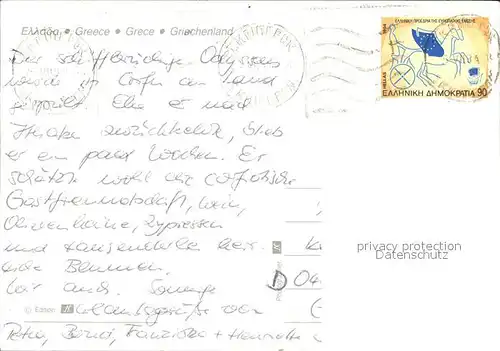 Ελλάδα • Greece • Grece • Griechenland
Der schiffbrüchige Odysseus
wurde in Corfu an Land
gespült. Ehe er nach
Ithaka zurückkehrte, blieb
er ein paar Wochen. Er
schätzte wohl die corfiotische
Gastfreundschaft, Wein,
Olivenhaine, Zypressen
und tausenderlei
Blumen.
Wir auch. Sonnige
Urlaubsgrüße von
Petra, Bernd, Franziska + Henriette
ΕΛΛΗΝΙΚΗ ΠΡΟΕΔΡΙΑ ΤΗΣ ΕΥΡΩΠΑΪΚΗΣ ΕΝΩΣΗΣ
HELLAS
ΕΛΛΗΝΙΚΗ ΔΗΜΟΚΡΑΤΙΑ 90
privacy protection
Verlag
D 04
© Edition